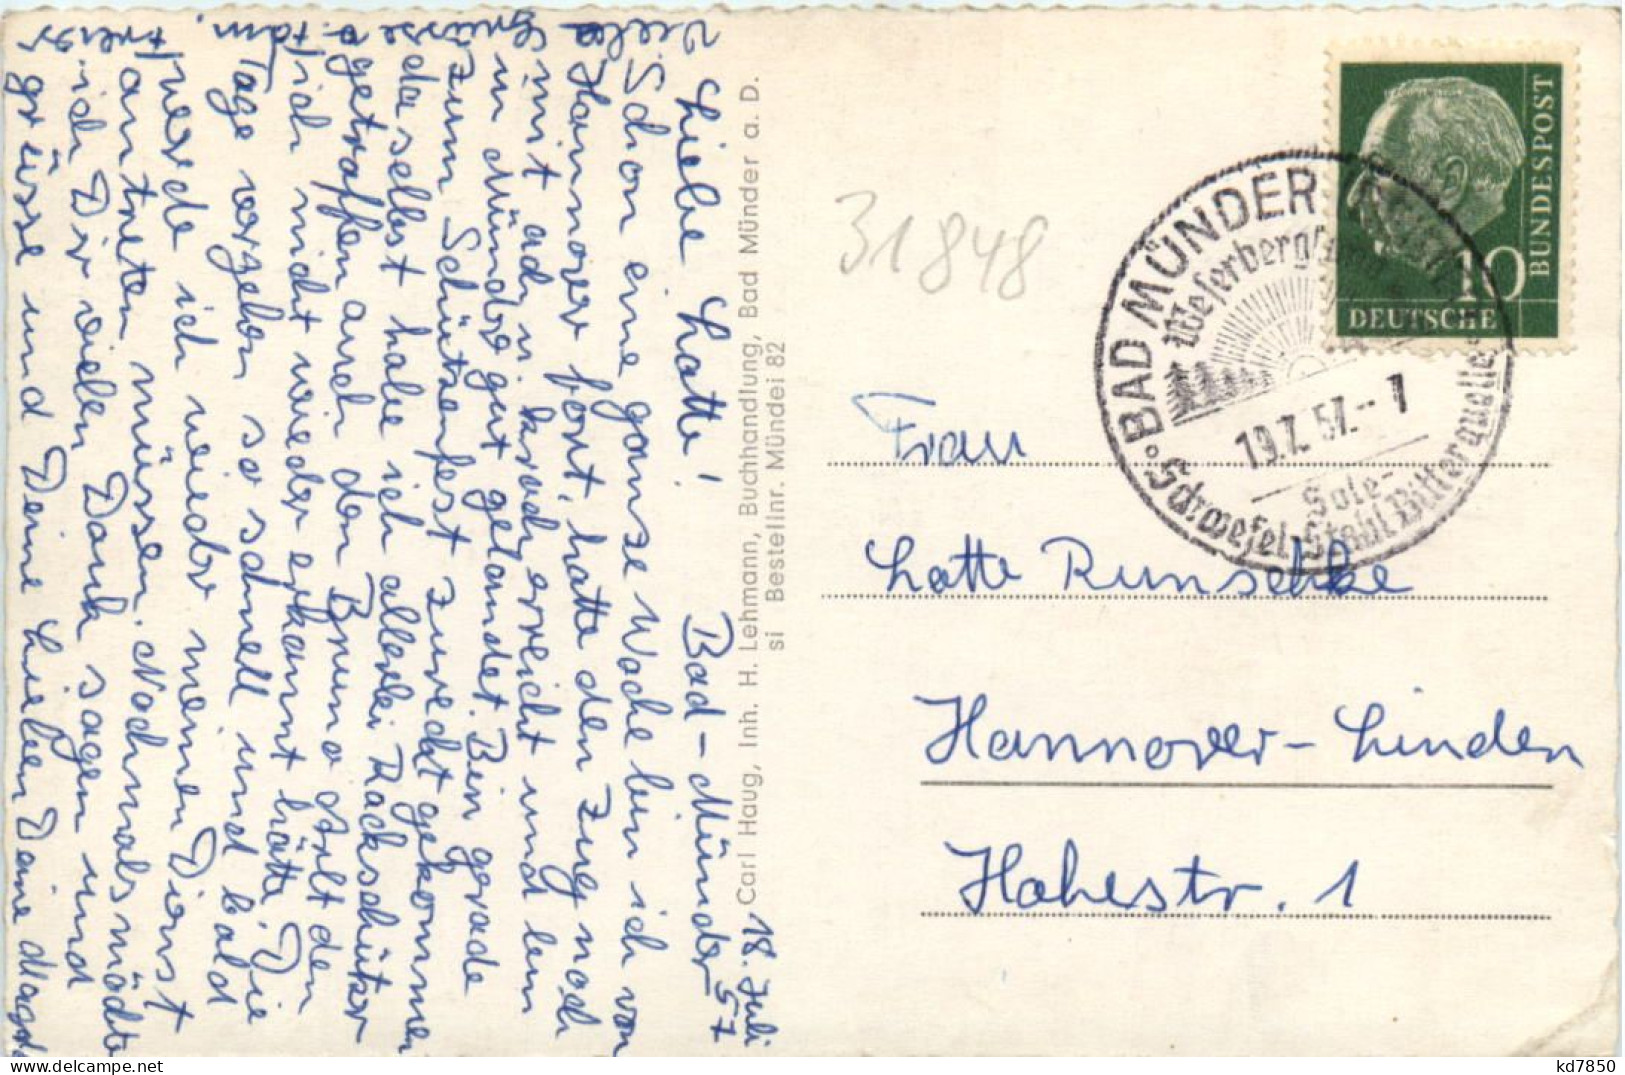 Liebe Lotte! Bad-Münder 18. Juli 57
Schon eine ganze Woche bin ich von
Hannover fort, hatte den Zug noch
mit ach u. krach erreicht und bin
in Münder gut gelandet. Bin gerade
zum Schützenfest zurecht gekommen
daselbst habe ich allerlei Rackschützer
getroffen auch den Bruno Arlt den
ich nicht wieder erkannt hätte. Die
Tage vergehen so schnell und bald
werde ich wieder meinen Dienst
antreten müssen. Nochmals möchte
ich Dir vielen Dank sagen und
grüsse und Deine Lieben Deine
Viele
Grüsse
Carl Haug, Inh. H. Lehmann, Buchhandlung, Bad Münder a. D.
si Bestellnr. Mündei 82
31848
BUNDESPOST
10
DEUTSCHE
BAD MÜNDER
Weserbergland
19.7.57.--7
Sole-
Schwefel-Stahl Bitterquellen
Frau
Lotte Runschke
Hannover-Linden
Hohestr. 1
kd7850